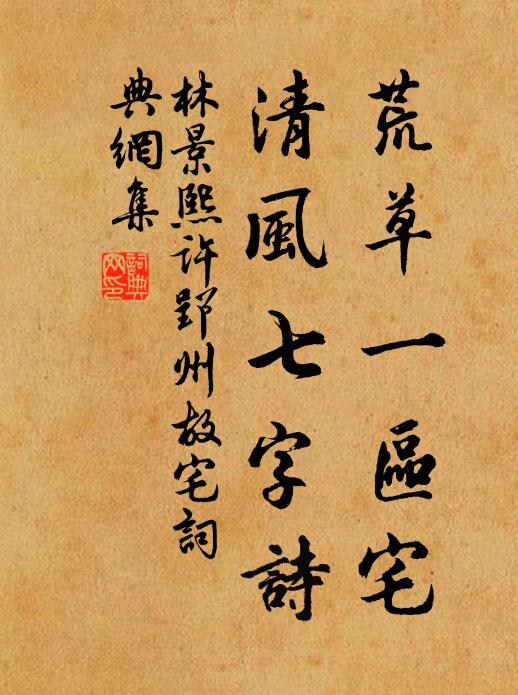 荒草一區宅
清風七字詩
林景熙許郢州故宅詞
典網集
詞典網印